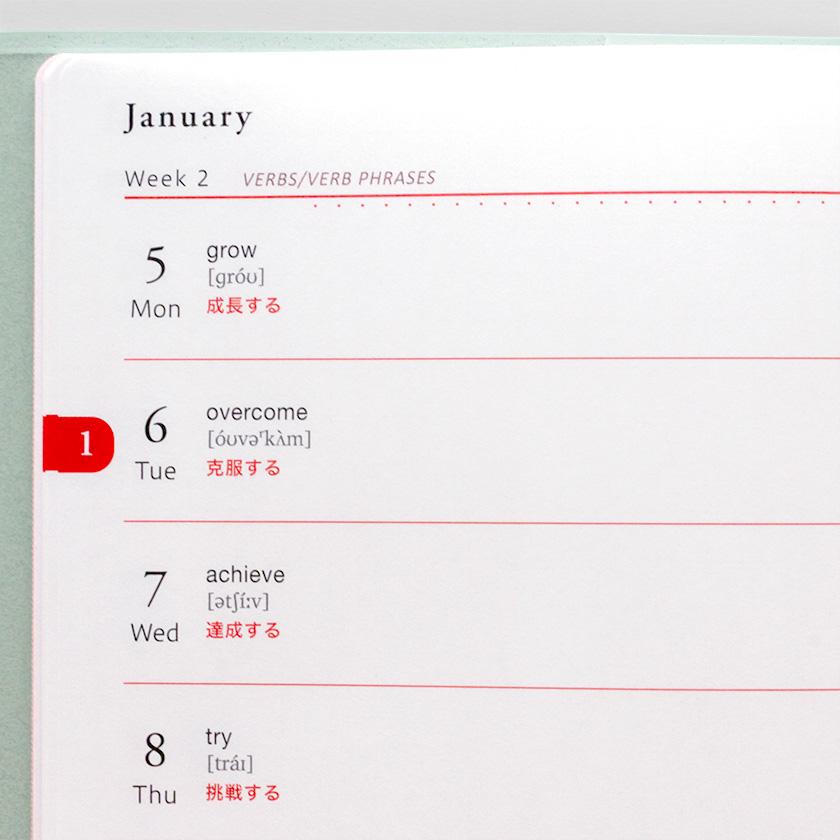 January
Week 2 VERBS/VERB PHRASES
5 grow
[ɡróʊ]
Mon 成長する
1
6 overcome
[óʊvəʳkʌ̀m]
Tue 克服する
7 achieve
[ətʃíːv]
Wed 達成する
8 try
[tráɪ]
Thu 挑戦する